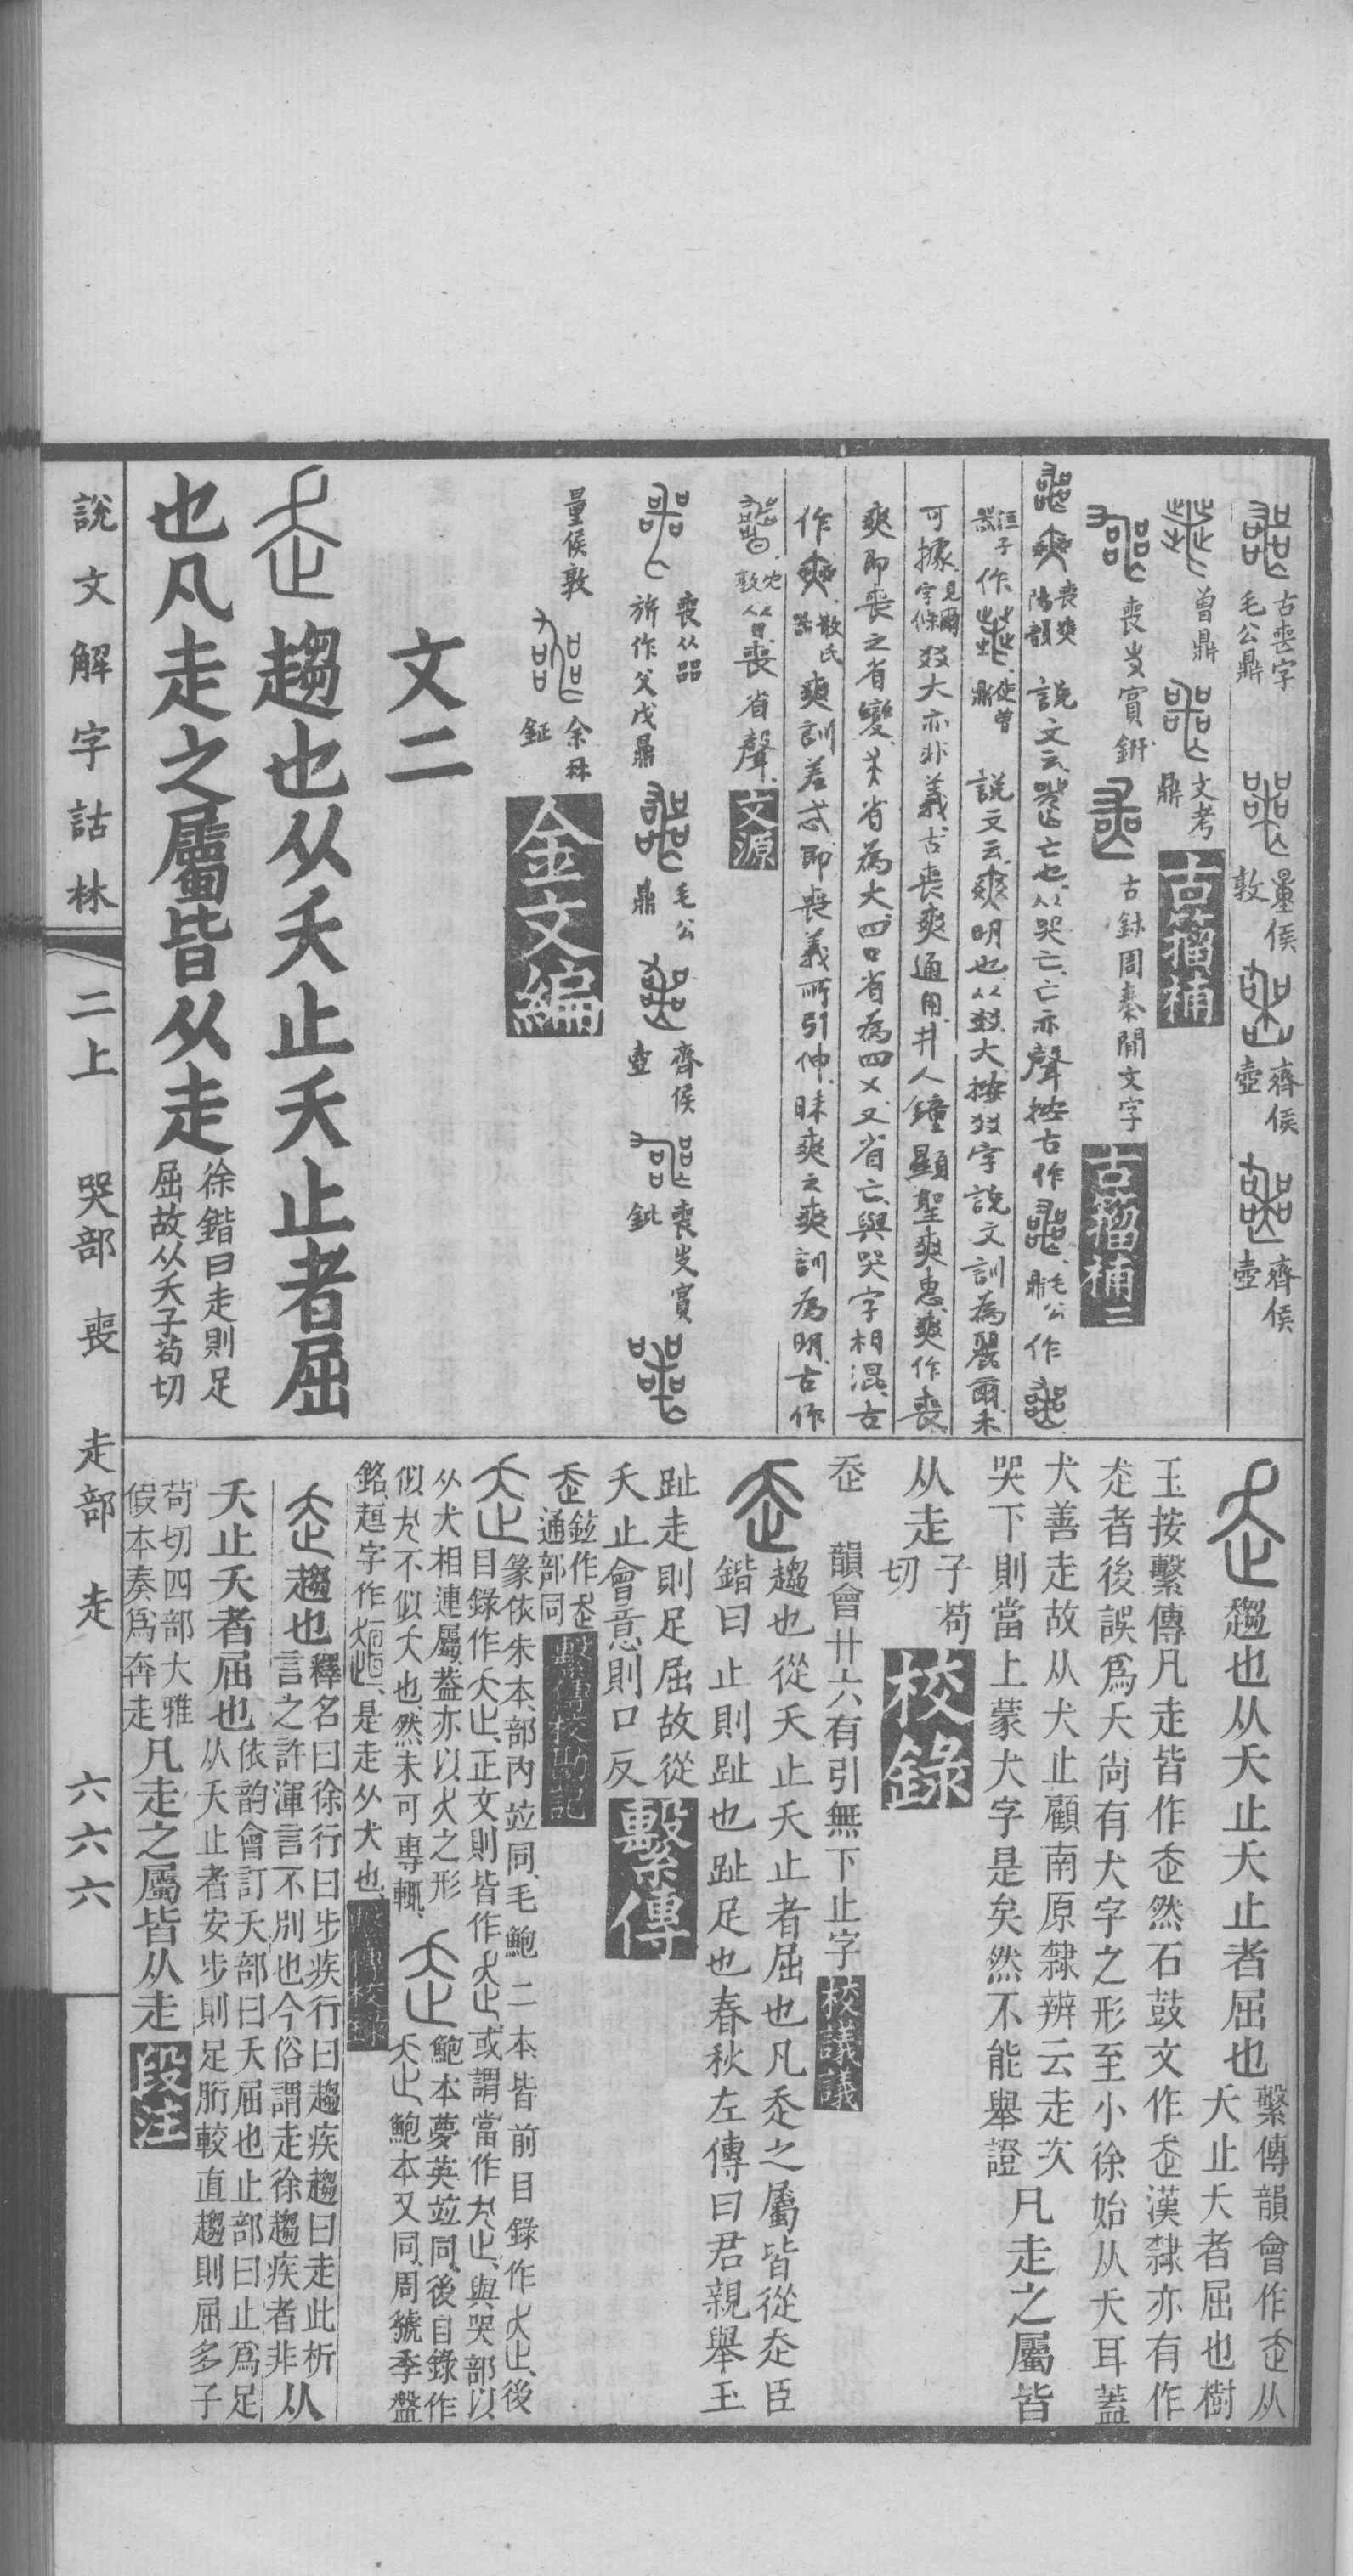 古喪字
毛公鼎
量侯
敦
齊侯
壺
齊侯
壺
曾鼎
文考
鼎
古籀補
喪㕜賓鈃
古鉢周秦間文字
古籀補二
喪爽
陽韻
說文云
亡也从哭亡亡亦聲按古作
毛公
鼎
作
作
說文云爽明也从㸚大按㸚字說文訓為麗爾未
可據
見爾
字條
㸚大亦非義古喪爽通用井人鐘顯聖爽惠爽作喪
爽即喪之省變
省為大四口省為四乂又省亡與哭字相混古
作
散氏
器
爽訓差忒即喪義所引伸昧爽之爽訓為明古作
喪省聲
文源
喪从㗊
旂作父戊鼎
毛公
鼎
齊侯
壺
喪㕜賓
鈚
量侯敦
余冉
鉦
金文編
文二
趨也从夭止夭止者屈
也凡走之屬皆从走
徐鍇曰走則足
屈故从夭子苟切
趨也从夭止夭止者屈也
繫傳韻會作
从
夭止夭者屈也樹
玉按繫傳凡走皆作
然石鼓文作
漢隸亦有作
者後誤爲夭尚有犬字之形至小徐始从夭耳蓋
犬善走故从犬止顧南原隸辨云走次
哭下則當上蒙犬字是矣然不能舉證
凡走之屬皆
从走
子苟
切
校錄
韻會廿六有引無下止字
校議議
趨也從夭止夭止者屈也凡
之屬皆從
臣
鍇曰止則趾也趾足也春秋左傳曰君親舉玉
趾走則足屈故從
夭止會意則口反
繫傳
鉉作
通部同
繫傳校勘記
篆依朱本部內竝同毛鮑二本皆前目錄作
後
目錄作
正文則皆作
或謂當作
與哭部以
从犬相連屬蓋亦以
之形
鮑本夢英竝同後目錄作
似
不似夭也然未可專輒
鮑本又同周虢季盤
銘趄字作
是走从犬也
繫傳校錄
趨也
釋名曰徐行曰步疾行曰趨疾趨曰走此析
言之許渾言不別也今俗謂走徐趨疾者非
从
夭止夭者屈也
依韵會訂夭部曰夭屈也止部曰止爲足
从夭止者安步則足胻較直趨則屈多子
苟切四部大雅
假本奏爲奔走
凡走之屬皆从走
段注
說文解字詁林
二上
哭部
喪
走部
走
六六六